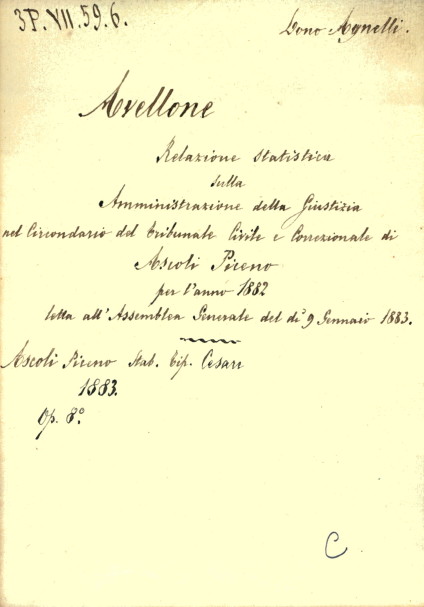 3P.VII.59.6.
Dono Agnelli.
Avellone
Relazione statistica
sulla
Amministrazione della Giustizia
nel Circondario del Tribunale Civile e Correzionale di
Ascoli Piceno
per l'anno 1882
letta all'Assemblea Generale del dì 9 Gennaio 1883.
Ascoli Piceno Stab. Tip. Cesari
1883.
Op. 8º.
C